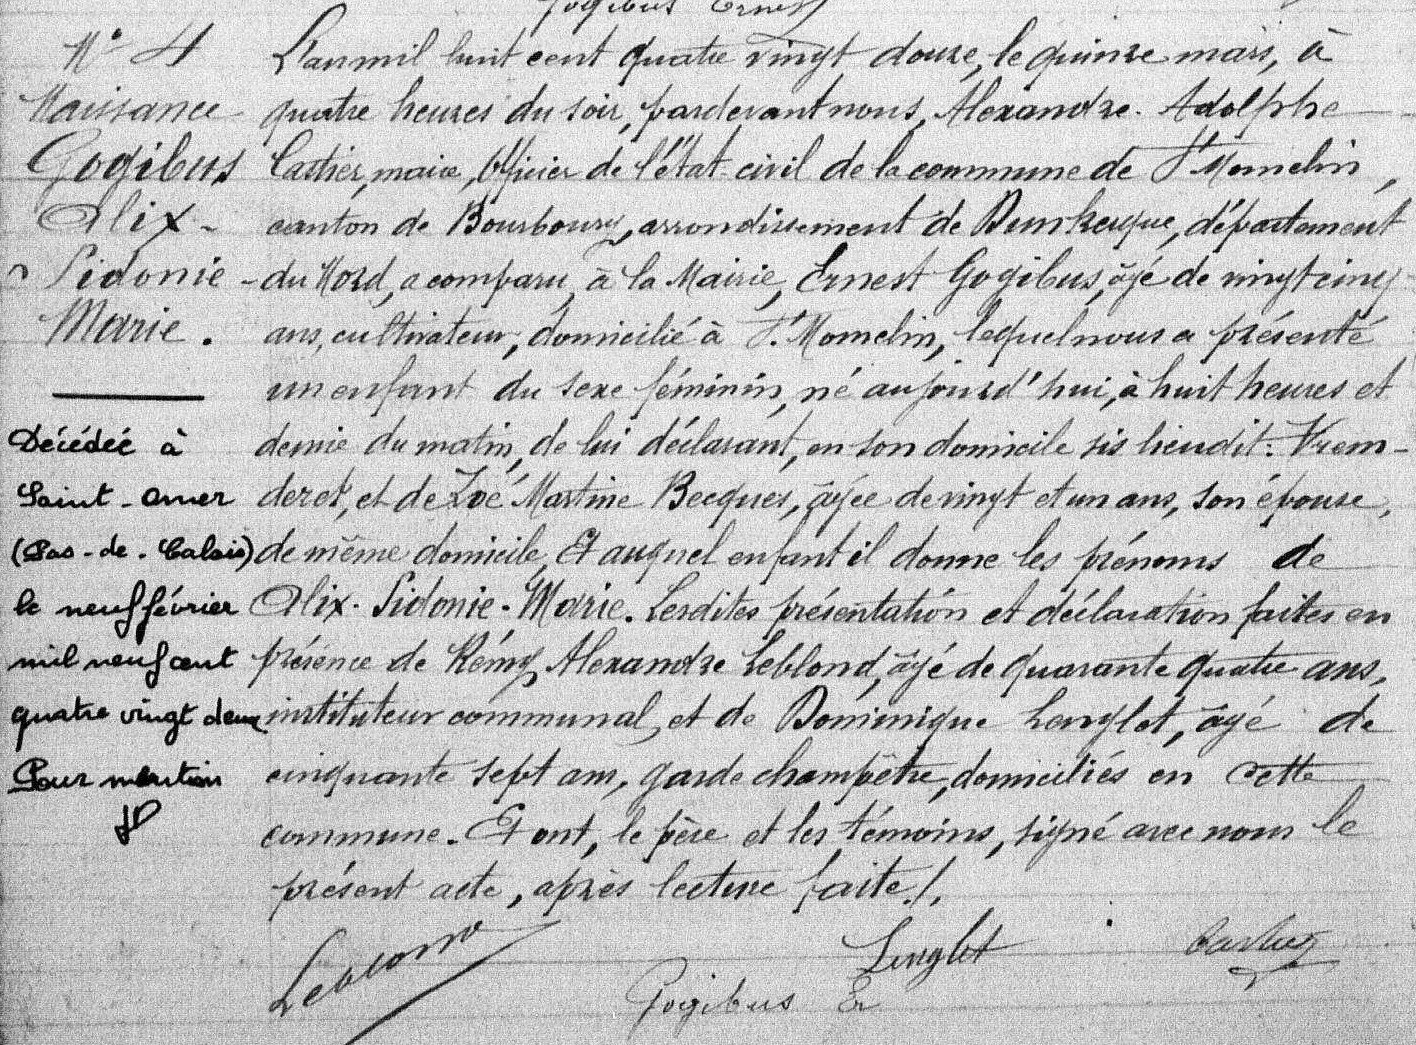 Gogibus Ernest
N° 4
Naissance
Gogibus
Alix -
Sidonie -
Marie .
Décédée à
Saint-Omer
(Pas-de-Calais)
le neuf février
mil neuf cent
quatre vingt deux
Pour mention
L'an mil huit cent quatre vingt douze, le quinze mars, à
quatre heures du soir, pardevant nous, Alexandre Adolphe
Castier, maire, Officier de l'état-civil de la commune de St Momelin,
canton de Bourbourg, arrondissement de Dunkerque, département
du Nord, a comparu, à la Mairie, Ernest Gogibus, âgé de vingt cinq
ans, cultivateur, domicilié à St Momelin, lequel nous a présenté
un enfant du sexe féminin, né aujourd'hui, à huit heures et
demie du matin, de lui déclarant, en son domicile sis lieudit :
et de Zoé Martine Becques, âgée de vingt et un ans, son épouse,
de même domicile, Et auquel enfant il donne les prénoms de
Alix - Sidonie - Marie. Lesdites présentation et déclaration faites en
présence de Rémy Alexandre Leblond, âgé de quarante quatre ans,
instituteur communal, et de Dominique Lenglet, âgé de
cinquante sept ans, garde champêtre, domiciliés en cette
commune. Et ont, le père et les témoins, signé avec nous le
présent acte, après lecture faite /.
Leblond
Lenglet
Castier
Gogibus Er